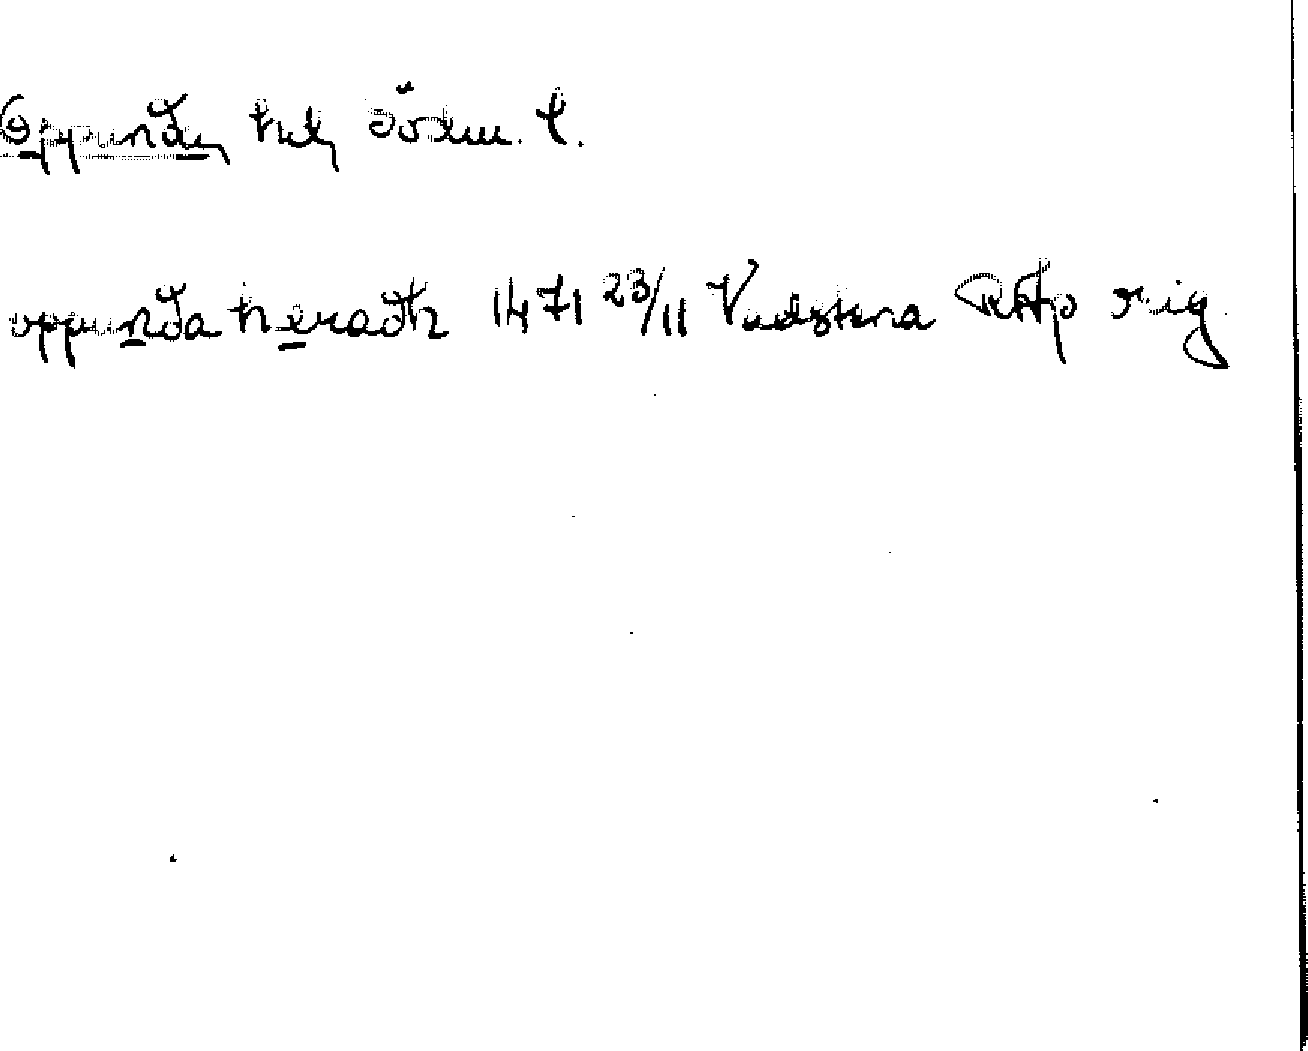 Oppunda hd Södm. l.
oppunda heradh 1471 23/11 Vadstena RAp sig